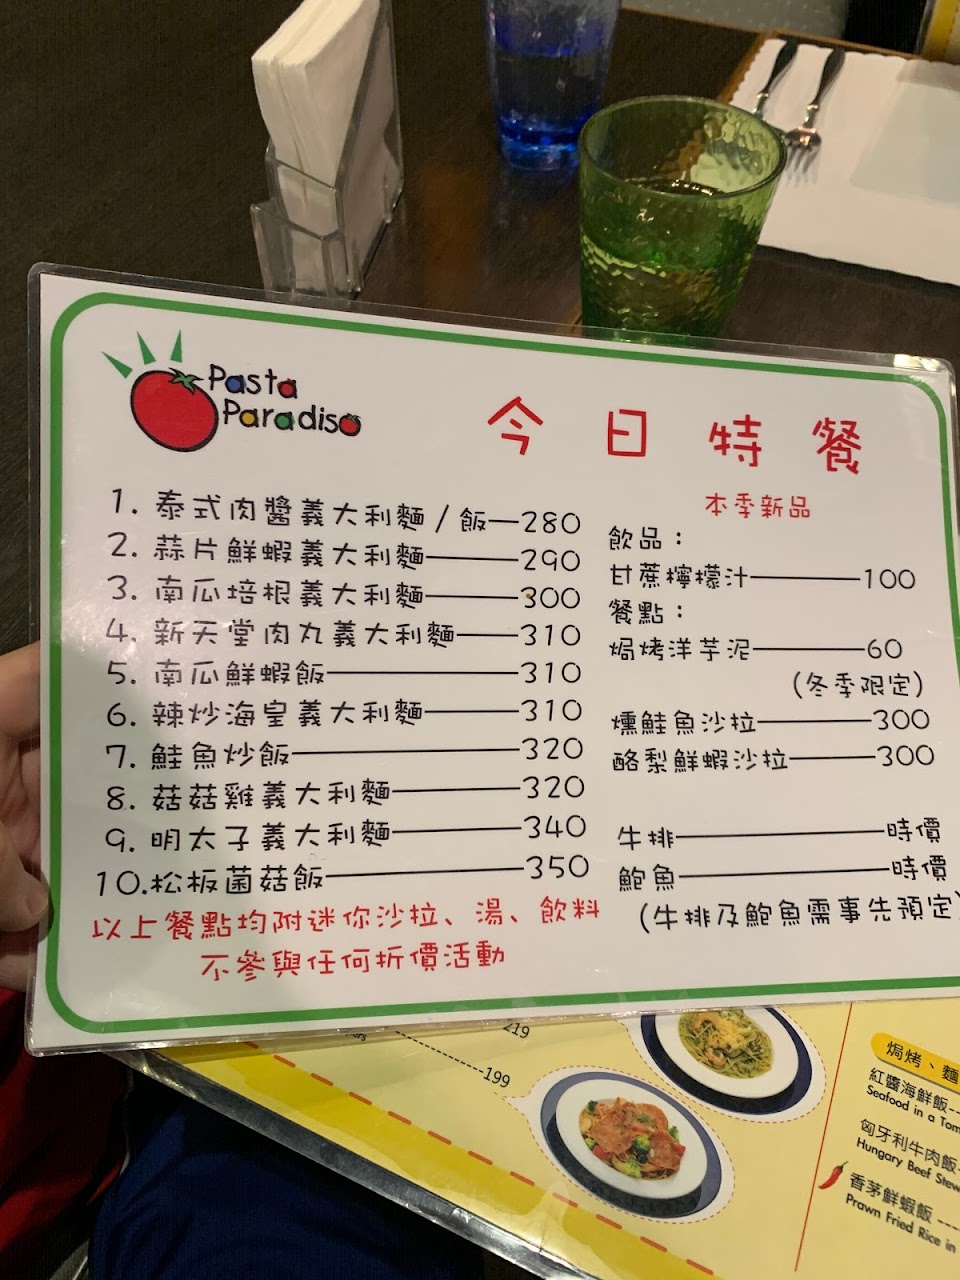 Pasta
Paradiso
今日特餐
1. 泰式肉醬義大利麵/飯—280
2. 蒜片鮮蝦義大利麵——290
3. 南瓜培根義大利麵——300
4. 新天堂肉丸義大利麵——310
5. 南瓜鮮蝦飯——310
6. 辣炒海皇義大利麵——310
7. 鮭魚炒飯——320
8. 菇菇雞義大利麵——320
9. 明太子義大利麵——340
10.松板菌菇飯——350
以上餐點均附迷你沙拉、湯、飲料
不參與任何折價活動
本季新品
飲品：
甘蔗檸檬汁——100
餐點：
焗烤洋芋泥——60
(冬季限定)
燻鮭魚沙拉——300
酪梨鮮蝦沙拉——300
牛排——時價
鮑魚——時價
(牛排及鮑魚需事先預定)
219
199
焗烤、麵
紅醬海鮮飯
Seafood in a Tom
匈牙利牛肉飯
Hungary Beef Stew
香茅鮮蝦飯
Prawn Fried Rice in